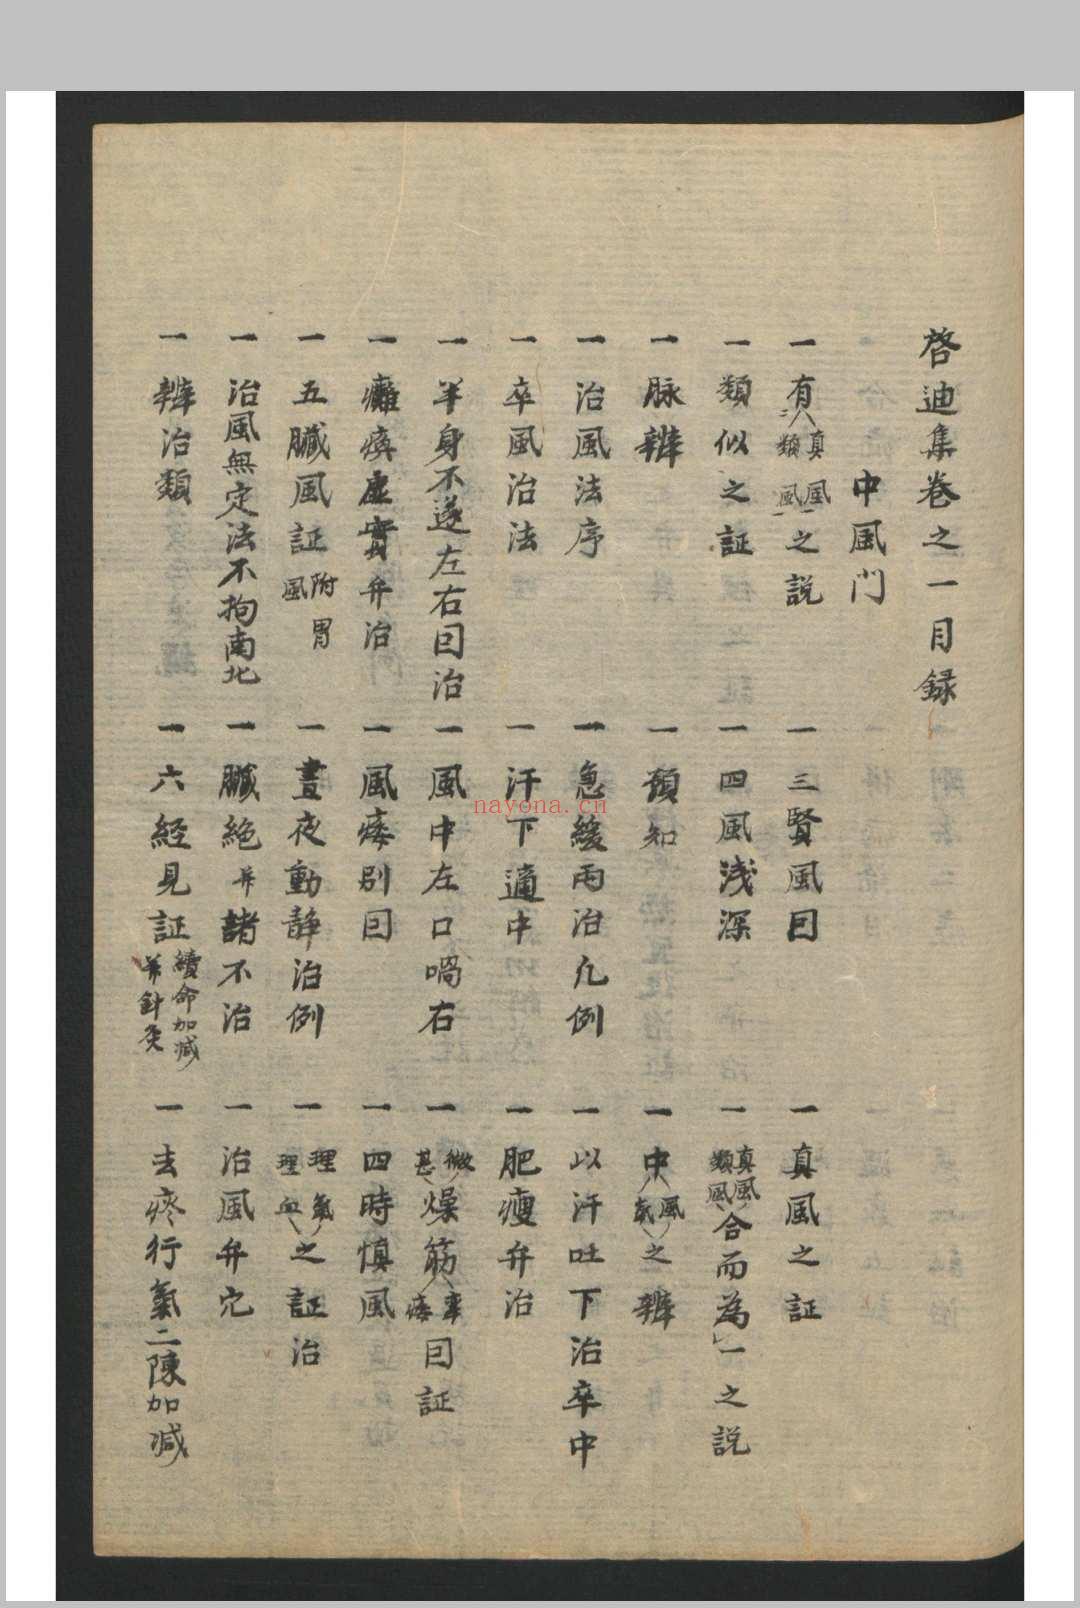 啓迪集卷之一目録
中風門
一有真風類風之説 一三賢風因 一真風之証
一類似之証 一四風浅深 一真風類風合而為一之説
一脉辨 一預知 一中風氣之辨
一治風法序 一急緩兩治凢例 一以汗吐下治卒中
一卒風治法 一汗下適中 一肥瘦弁治
一半身不遂左右囙治 一風中左口喎右 一微甚燥筋牽痿囙証
一癱瘓虚實弁治 一風痿别囙 一四時慎風
一五臓風証附胃風 一晝夜動静治例 一理氣理血之証治
一治風無定法不拘南北 一臓絶并諸不治 一治風弁穴
一辨治類 一六経見証續命加减并針灸 一去疼行氣二陳加减
nayona.cn